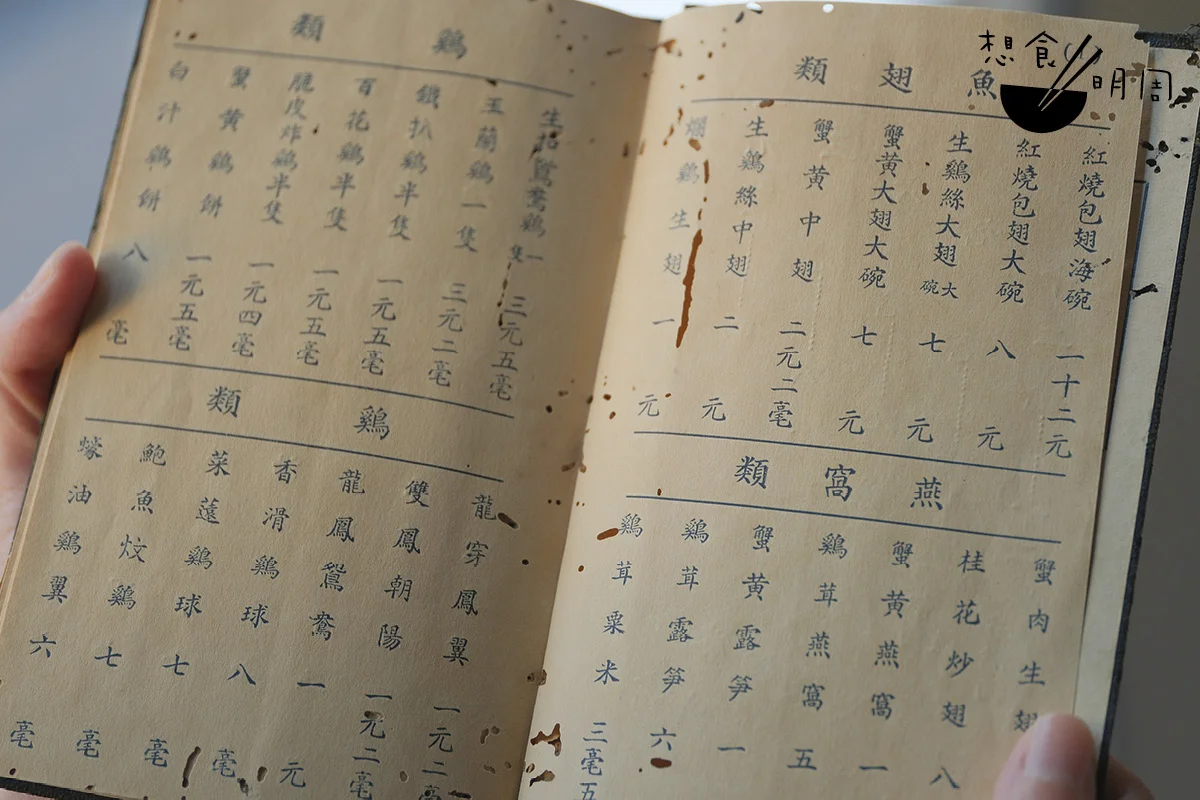 想食
明周
魚翅類
紅燒包翅海碗 一十二元
紅燒包翅大碗 八元
生鷄絲大翅大碗 七元
蟹黃大翅大碗 七元
蟹黃中翅 二元二毫
生鷄絲中翅 二元
爛鷄生翅 一元
燕窩類
蟹肉生翅 八
桂花炒翅
蟹黃燕窩 一
鷄茸燕窩 五
蟹黃露笋 一
鷄茸露笋 六
鷄茸粟米 三毫五
鷄類
生拍鴛鴦鷄一隻 三元五毫
玉蘭鷄一隻 三元二毫
鐵扒鷄半隻 一元五毫
百花鷄半隻 一元五毫
脆皮炸鷄半隻 一元四毫
蟹黃鷄餅 一元五毫
白汁鷄餅 八毫
鷄類
龍穿鳳翼 一元二毫
雙鳳朝陽 一元二毫
龍鳳鴛鴦 一元
香滑鷄球 八毫
菜薳鷄球 七毫
鮑魚炆鷄 七毫
蠔油鷄翼 六毫